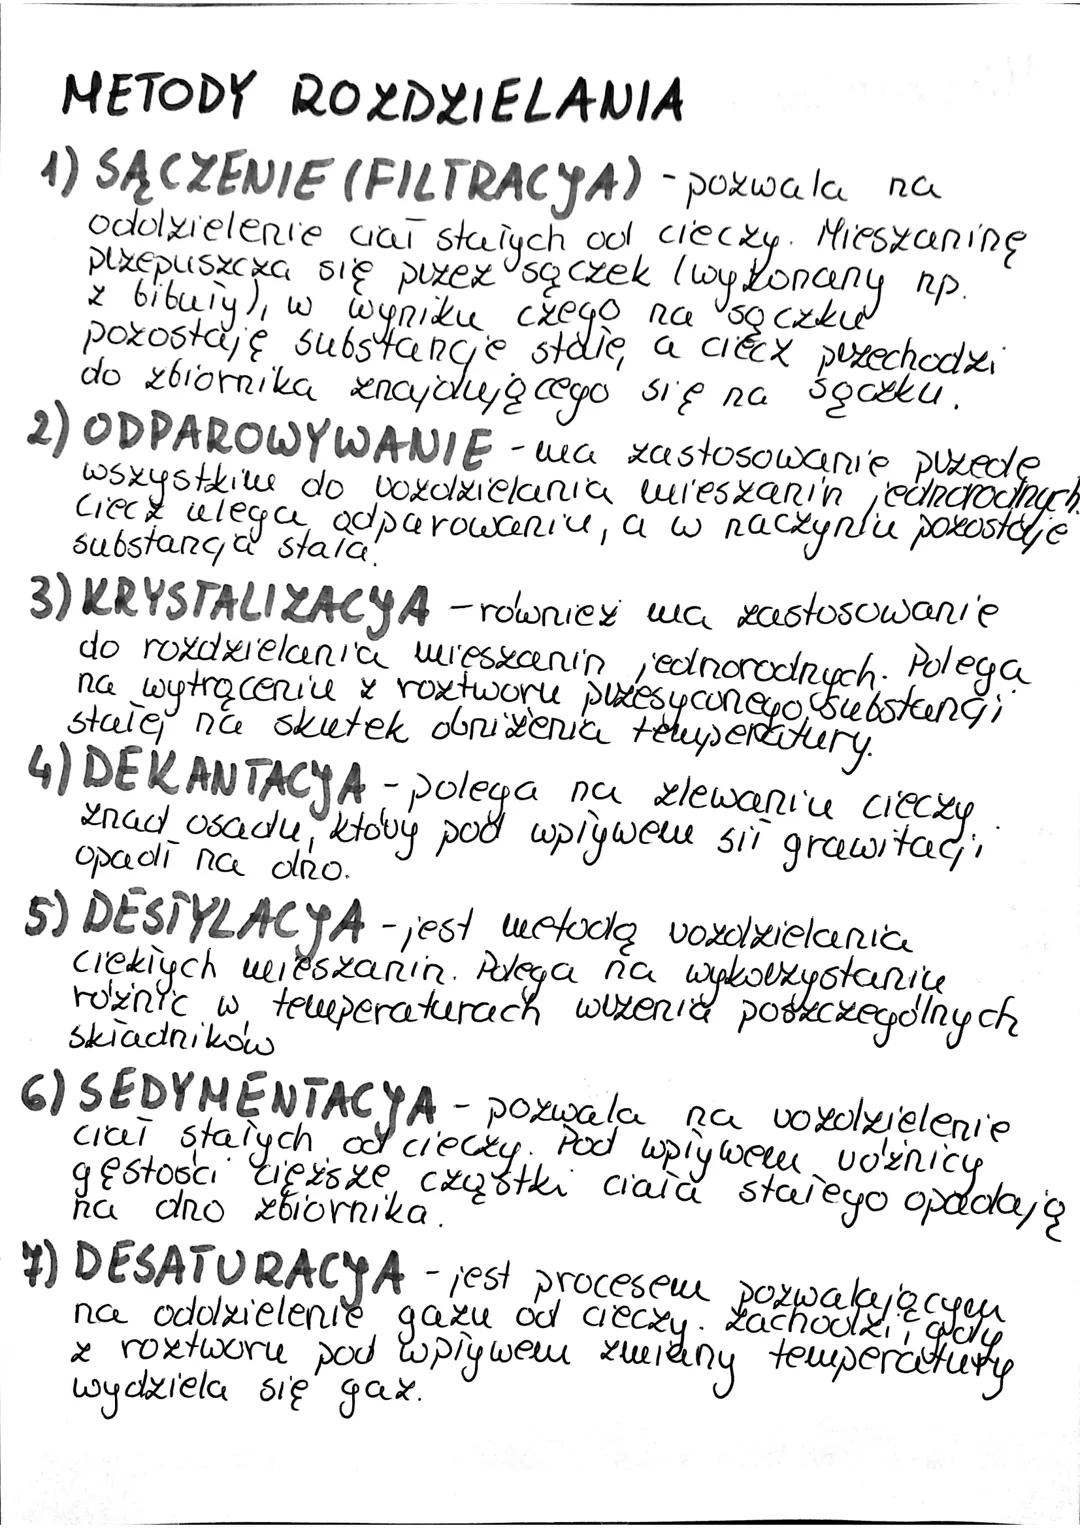 METODY ROZDZIELANIA
1) SĄCZENIE (FILTRACJA) - pozwala na
oddzielenie ciał stałych od cieczy. Mieszaninę
przepuszcza się przez sączek (wykonany np.
z bibuły), w wyniku czego na sączku
pozostaję substancje stałe, a ciecz przechodzi
do zbiornika znajdującego się na sączku.
2) ODPAROWYWANIE - ma zastosowanie przede
wszystkim do rozdzielania mieszanin jednorodnych.
Ciecz ulega odparowaniu, a w naczyniu pozostaje
substancja stała.
3) KRYSTALIZACJA - również ma zastosowanie
do rozdzielania mieszanin jednorodnych. Polega
na wytrąceniu z roztworu przesyconego substancji
stałej na skutek obniżenia temperatury.
4) DEKANTACJA - polega na zlewaniu cieczy
znad osadu, który pod wpływem sił grawitacji
opadł na dno.
5) DESTYLACJA - jest metodą rozdzielania
ciekłych mieszanin. Polega na wykorzystaniu
różnic w temperaturach wrzenia poszczególnych
składników
6) SEDYMENTACJA - pozwala na rozdzielenie
ciał stałych od cieczy. Pod wpływem różnicy
gęstości cięższe cząstki ciała stałego opadają
na dno zbiornika.
7) DESATURACJA - jest procesem pozwalającym
na oddzielenie gazu od cieczy. Zachodzi, gdy
z roztworu pod wpływem zmiany temperatury
wydziela się gaz.